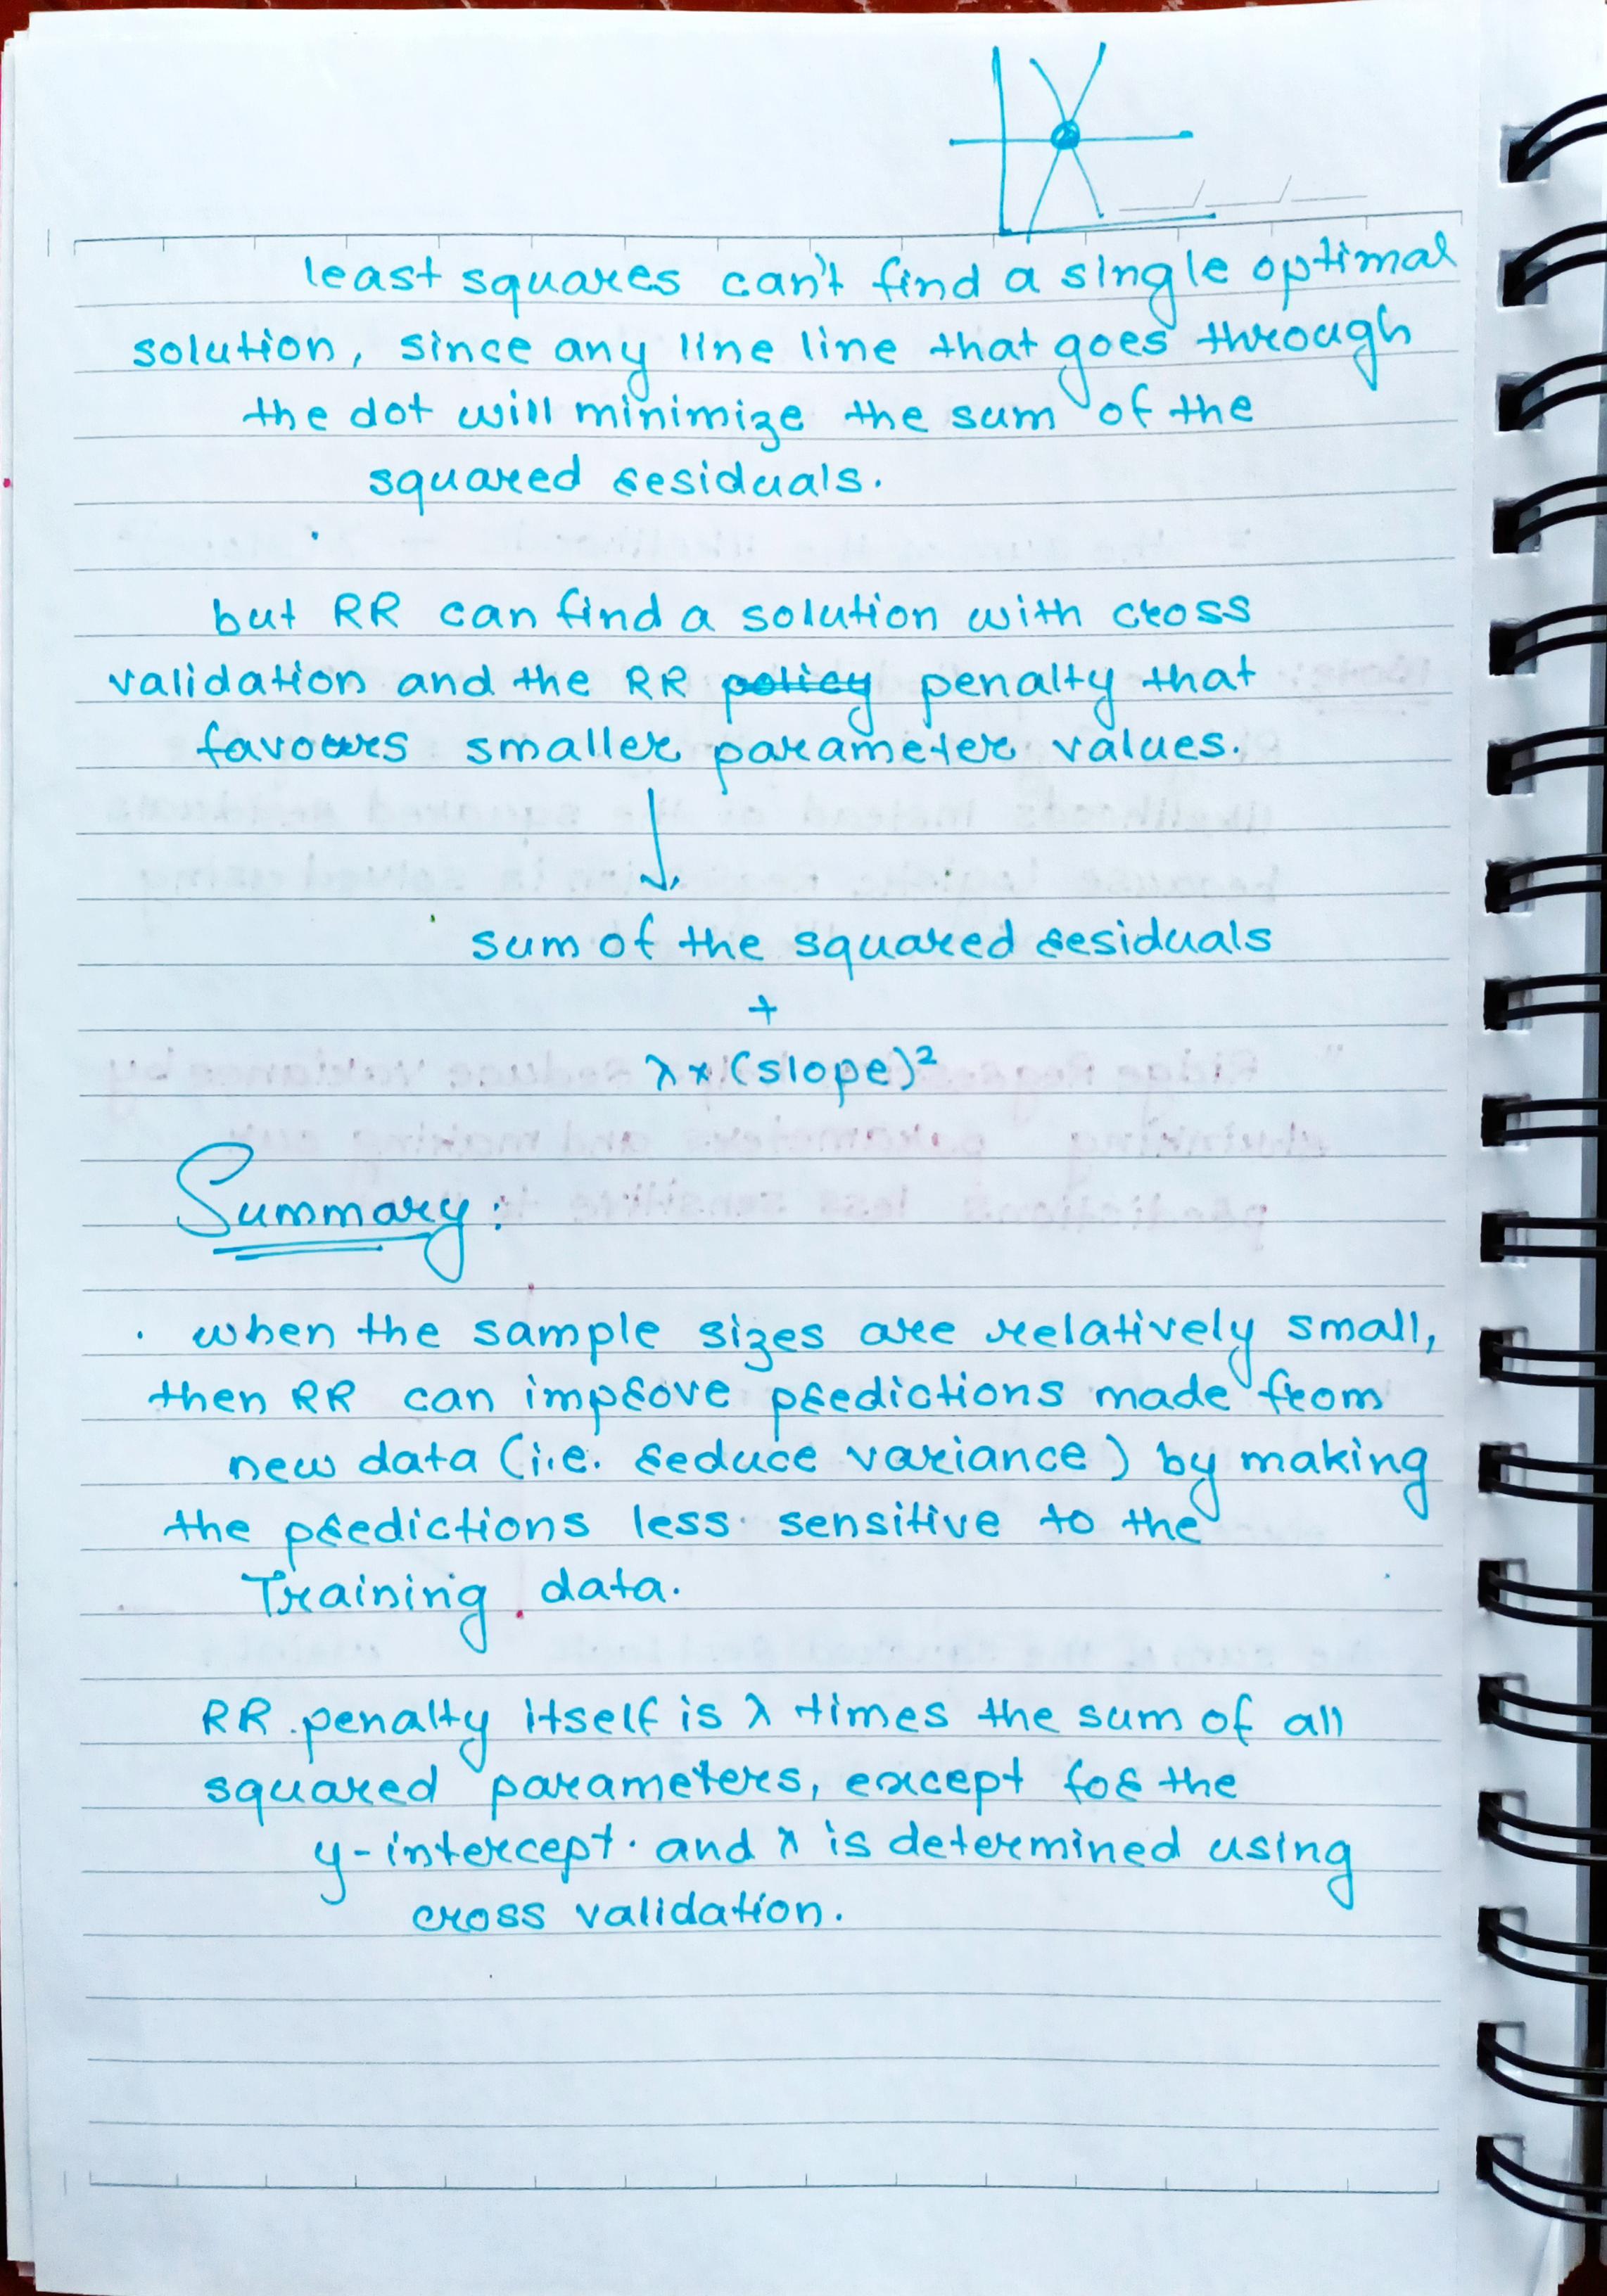 least squares can't find a single optimal
solution, since any line line that goes through
the dot will minimize the sum of the
squared residuals.
but RR can find a solution with cross
validation and the RR policy penalty that
favours smaller parameter values.
sum of the squared residuals
+
λ × (slope)²
Summary:
. when the sample sizes are relatively small,
then RR can improve predictions made from
new data (i.e. reduce variance) by making
the predictions less sensitive to the
Training data.
RR penalty itself is λ times the sum of all
squared parameters, except for the
y-intercept. and λ is determined using
cross validation.